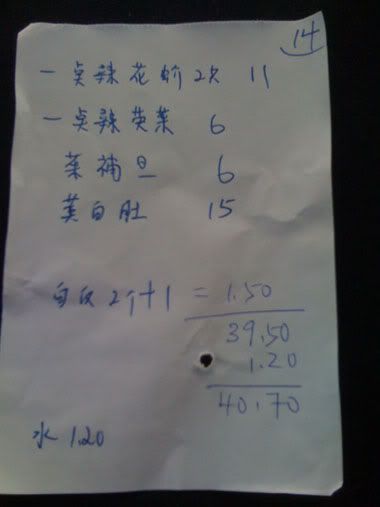 14
一点辣花蚧 11
一点辣英菜 6
菜補旦 6
白肚 15
白反 2个+1 = 1.50
39.50
1.20
40.70
水 1.20